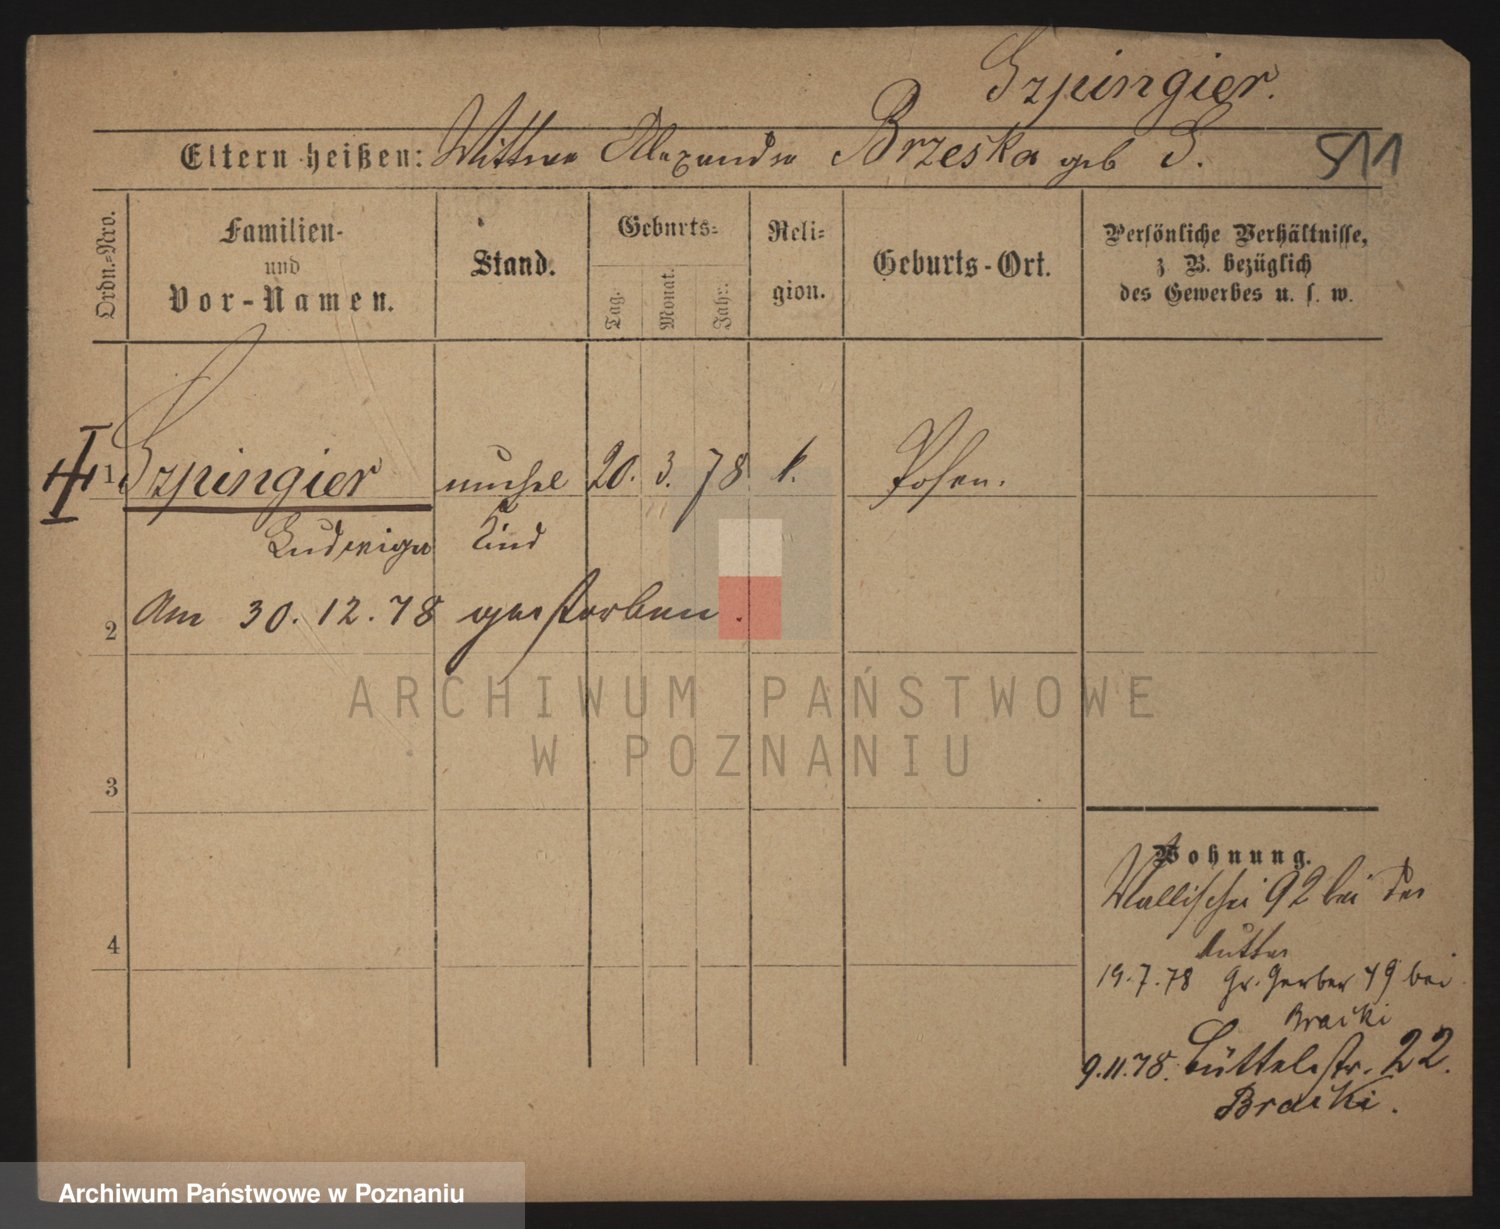 Szpingier.
Eltern heißen: Wittwe Alexandra Brzeska geb S.
811
Ordn.=Nro.
Familien-
und
Vor-Namen.
Stand.
Geburts=
Tag.
Monat.
Jahr.
Reli=
gion.
Geburts-Ort.
Persönliche Verhältnisse,
z B. bezüglich
des Gewerbes u. s. w.
1 Szpingier unehel 20. 3. 78 k. Posen.
Ludwiga Kind
2 Am 30.12.78 gestorben.
ARCHIWUM PAŃSTWOWE
W POZNANIU
3
4
Wohnung.
Wallischei 92 bei der
Mutter
19.7.78 Gr. Gerber 49 bei
Bracki
9.11.78. Büttelstr. 22.
Bracki.
Archiwum Państwowe w Poznaniu